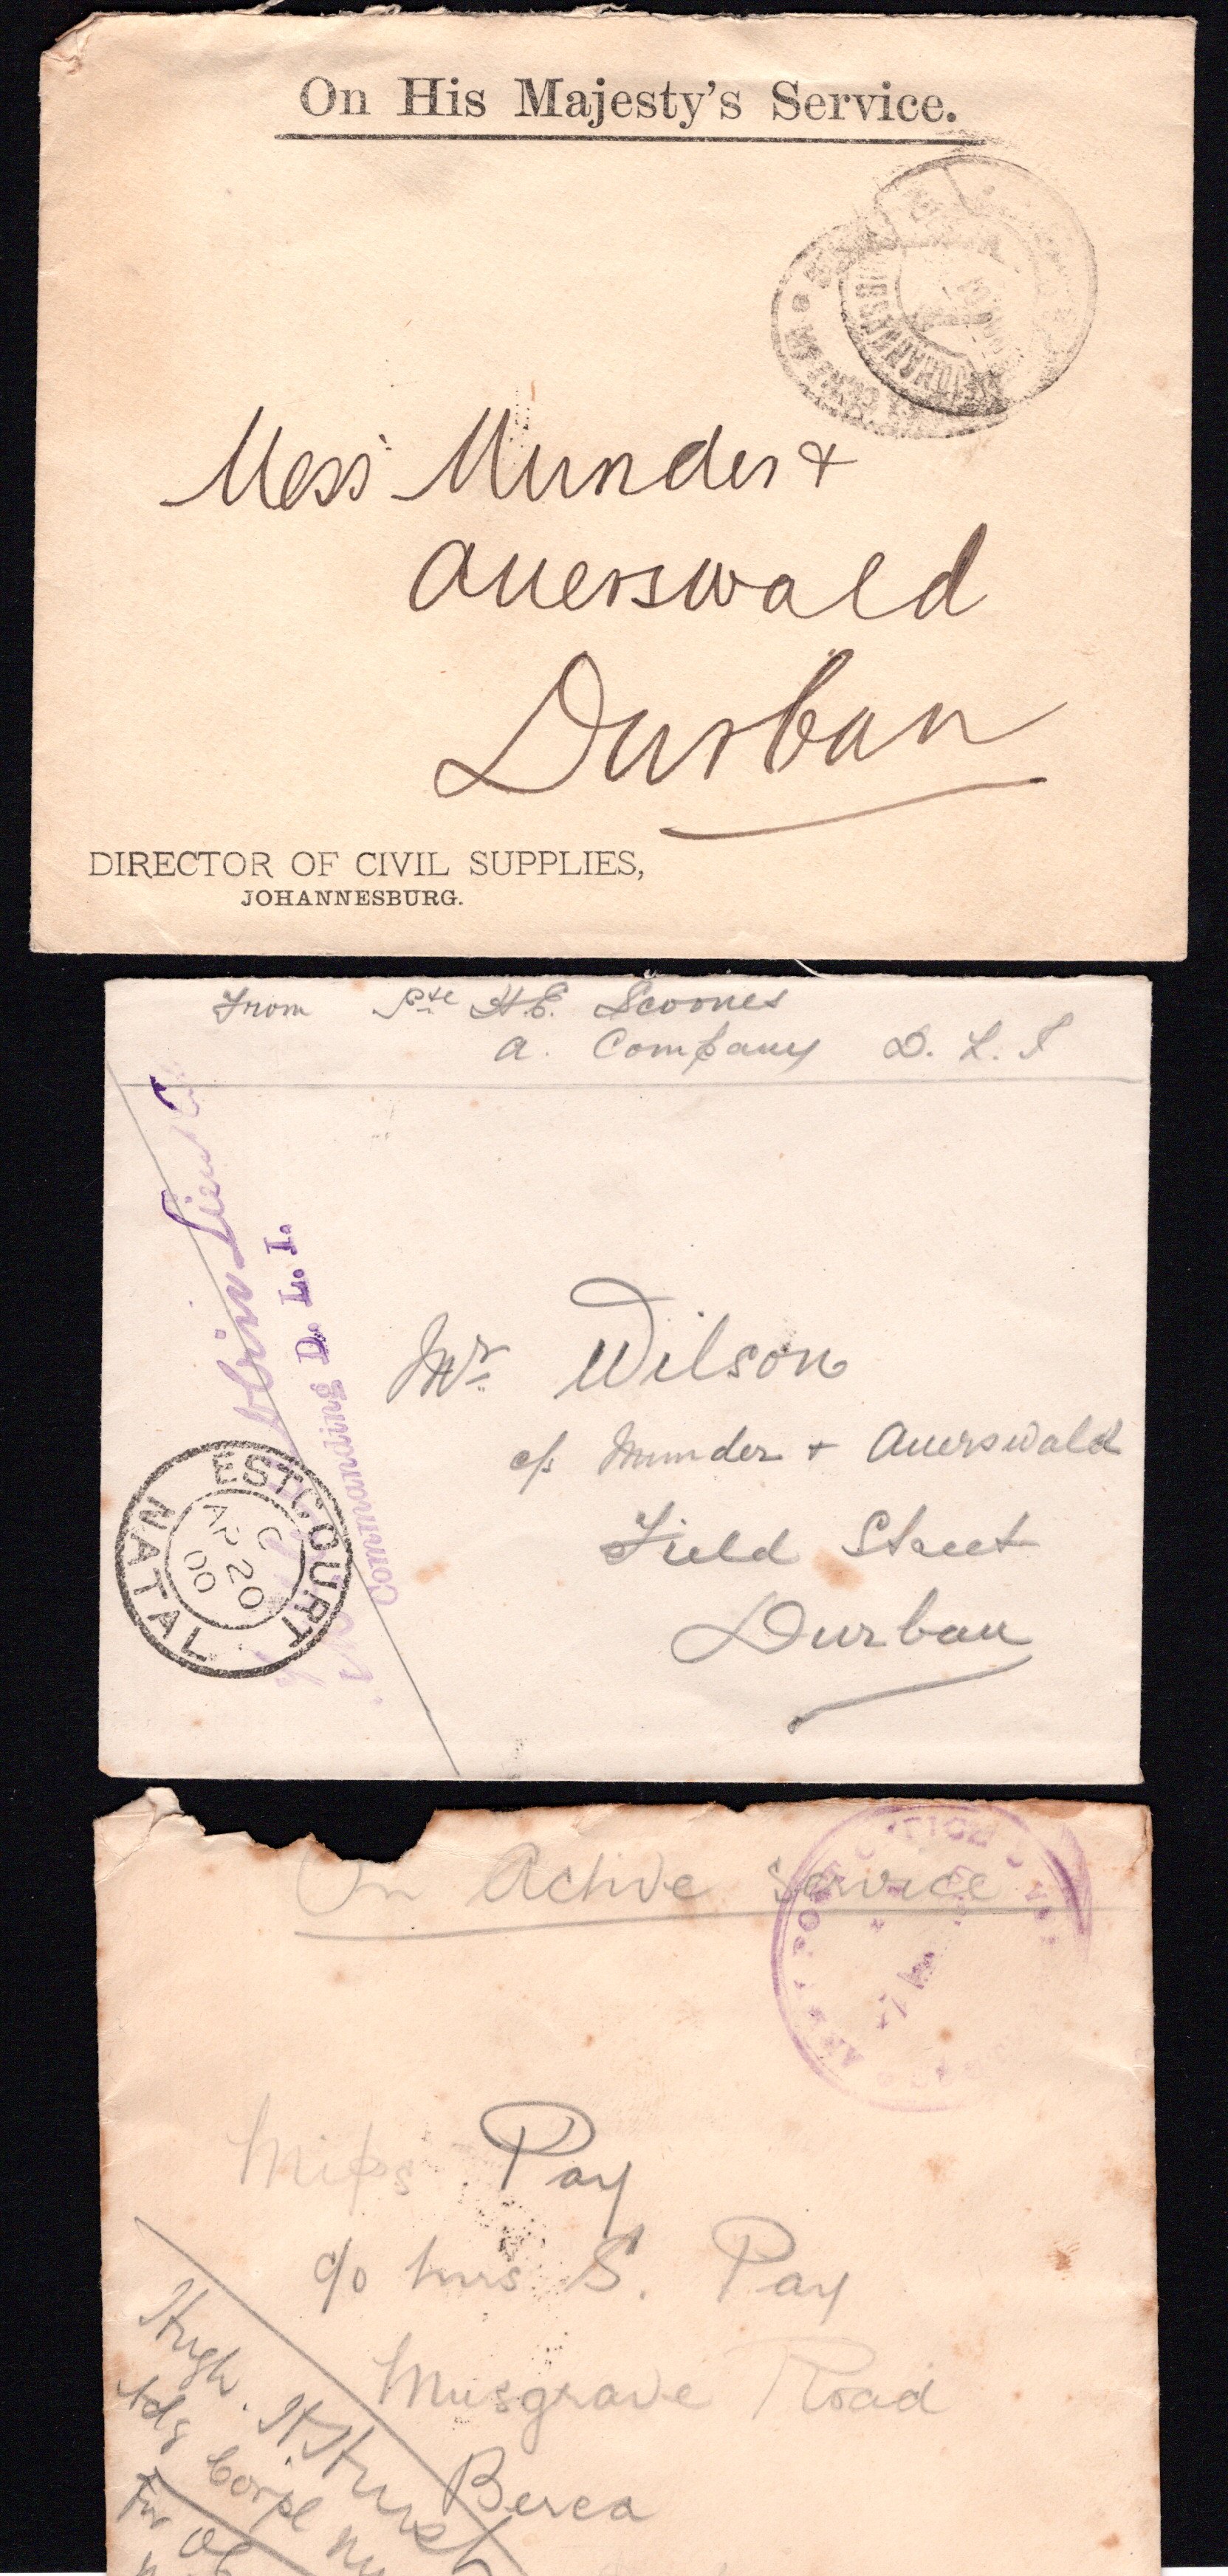 On His Majesty's Service.
JOHANNESBURG
Mess Munder +
Auerswald
Durban
DIRECTOR OF CIVIL SUPPLIES,
JOHANNESBURG.
From Pte H.E. Scoones
A. Company D. L. I
Commanding D. L. I.
ESTCOURT
NATAL
C
AP 20
00
Mr Wilson
c/o Munder + Auerswald
Field Street
Durban
On Active Service
Miss Pay
c/o Mrs S. Pay
Musgrave Road
Berea
Hugh. H. Hurst
Corpl